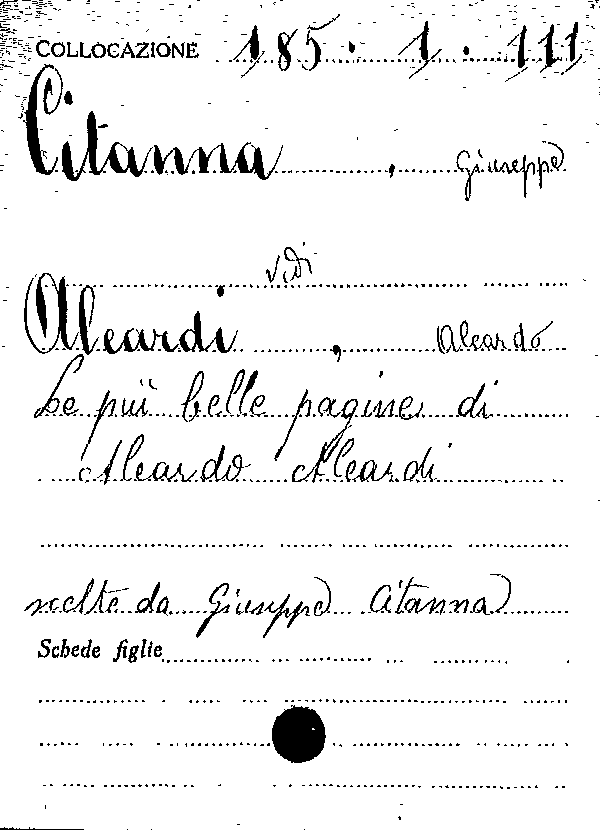 COLLOCAZIONE 185.1.111
Citanna, Giuseppe
vedi
Aleardi, Aleardo
Le più belle pagine di
Aleardo Aleardi
scelte da Giuseppe Citanna
Schede figlie